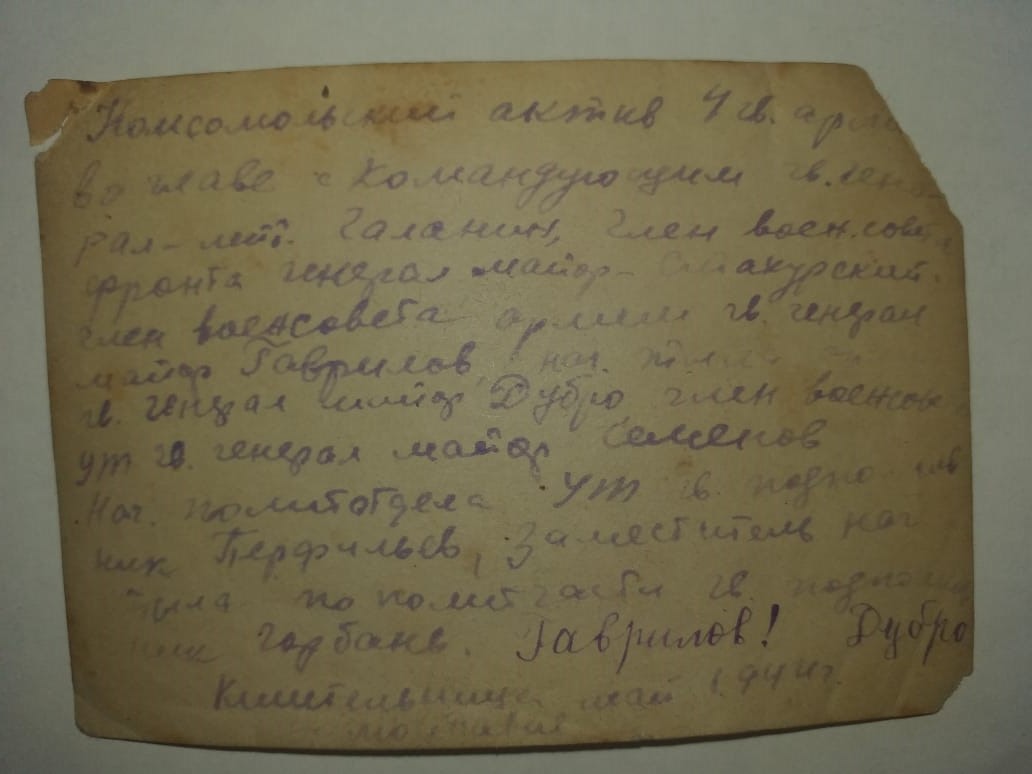 Комсомольский актив 4 гв. арми
во главе с командующим гв. гене
рал-лейт. Галанин, член воен.совета
фронта генерал майор
член воен.совета армии гв. генерал
майор Гаврилов, нач.
гв. генерал майор Дубро член воен.сов
ут гв. генерал майор Семенов
Нач. политотдела УТ гв. подпол
ник Перфильев, Заместитель нач
тыла по политчасти гв. подпол
ник Горбань. Гаврилов! Дубро
май 1944г.